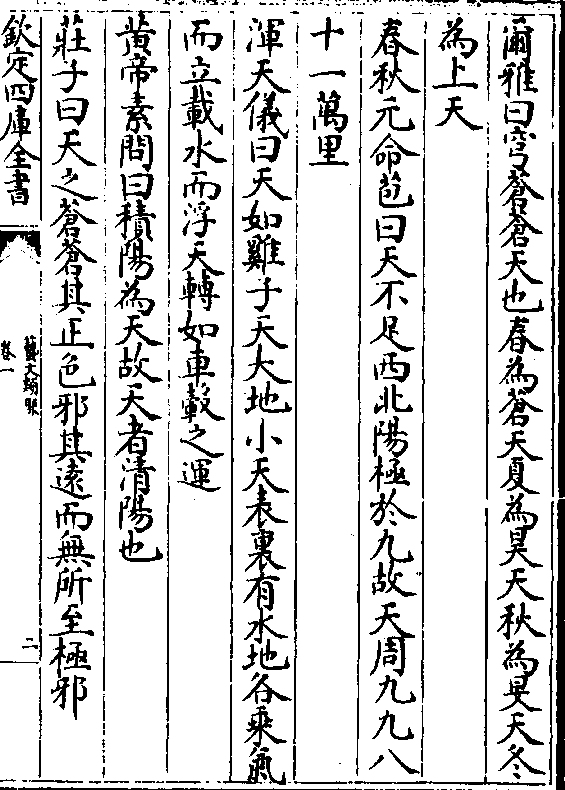 爾雅曰穹蒼蒼天也春為蒼天夏為昊天秋為旻天冬
為上天
春秋元命苞曰天不足西北陽極於九故天周九九八
十一萬里
渾天儀曰天如雞子天大地小天表裏有水地各乘氣
而立載水而浮天轉如車轂之運
黄帝素問曰積陽為天故天者清陽也
莊子曰天之蒼蒼其正色邪其逺而無所至極邪
欽定四庫全書
藝文類聚
卷一
二